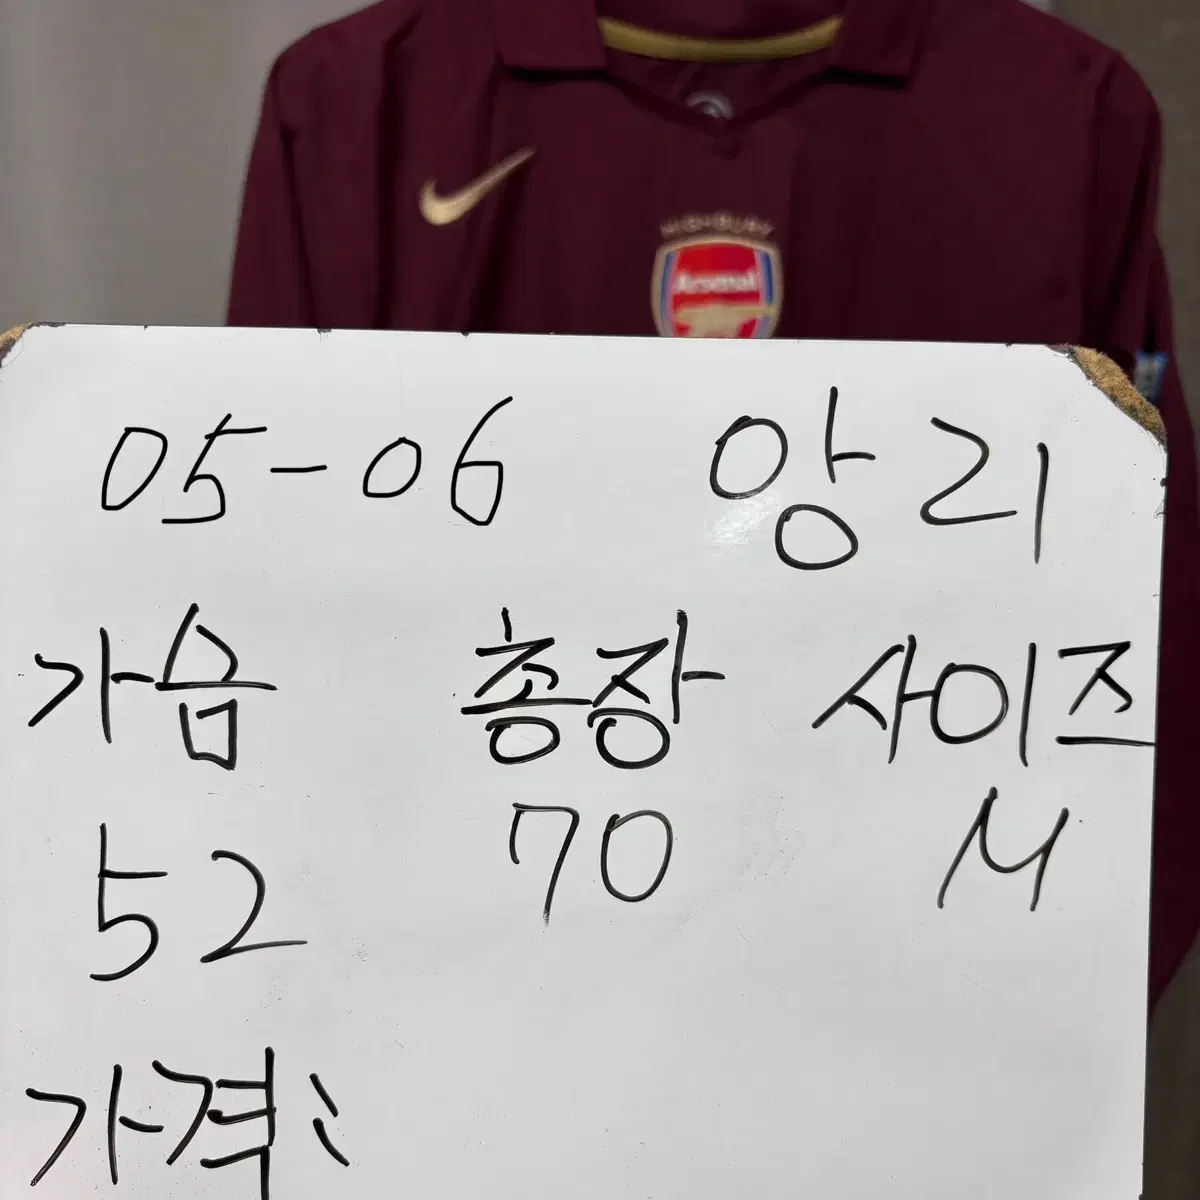 HIGHBURY
Arsenal
05-06 앙리
가슴 총장 사이즈
52 70 M
가격: